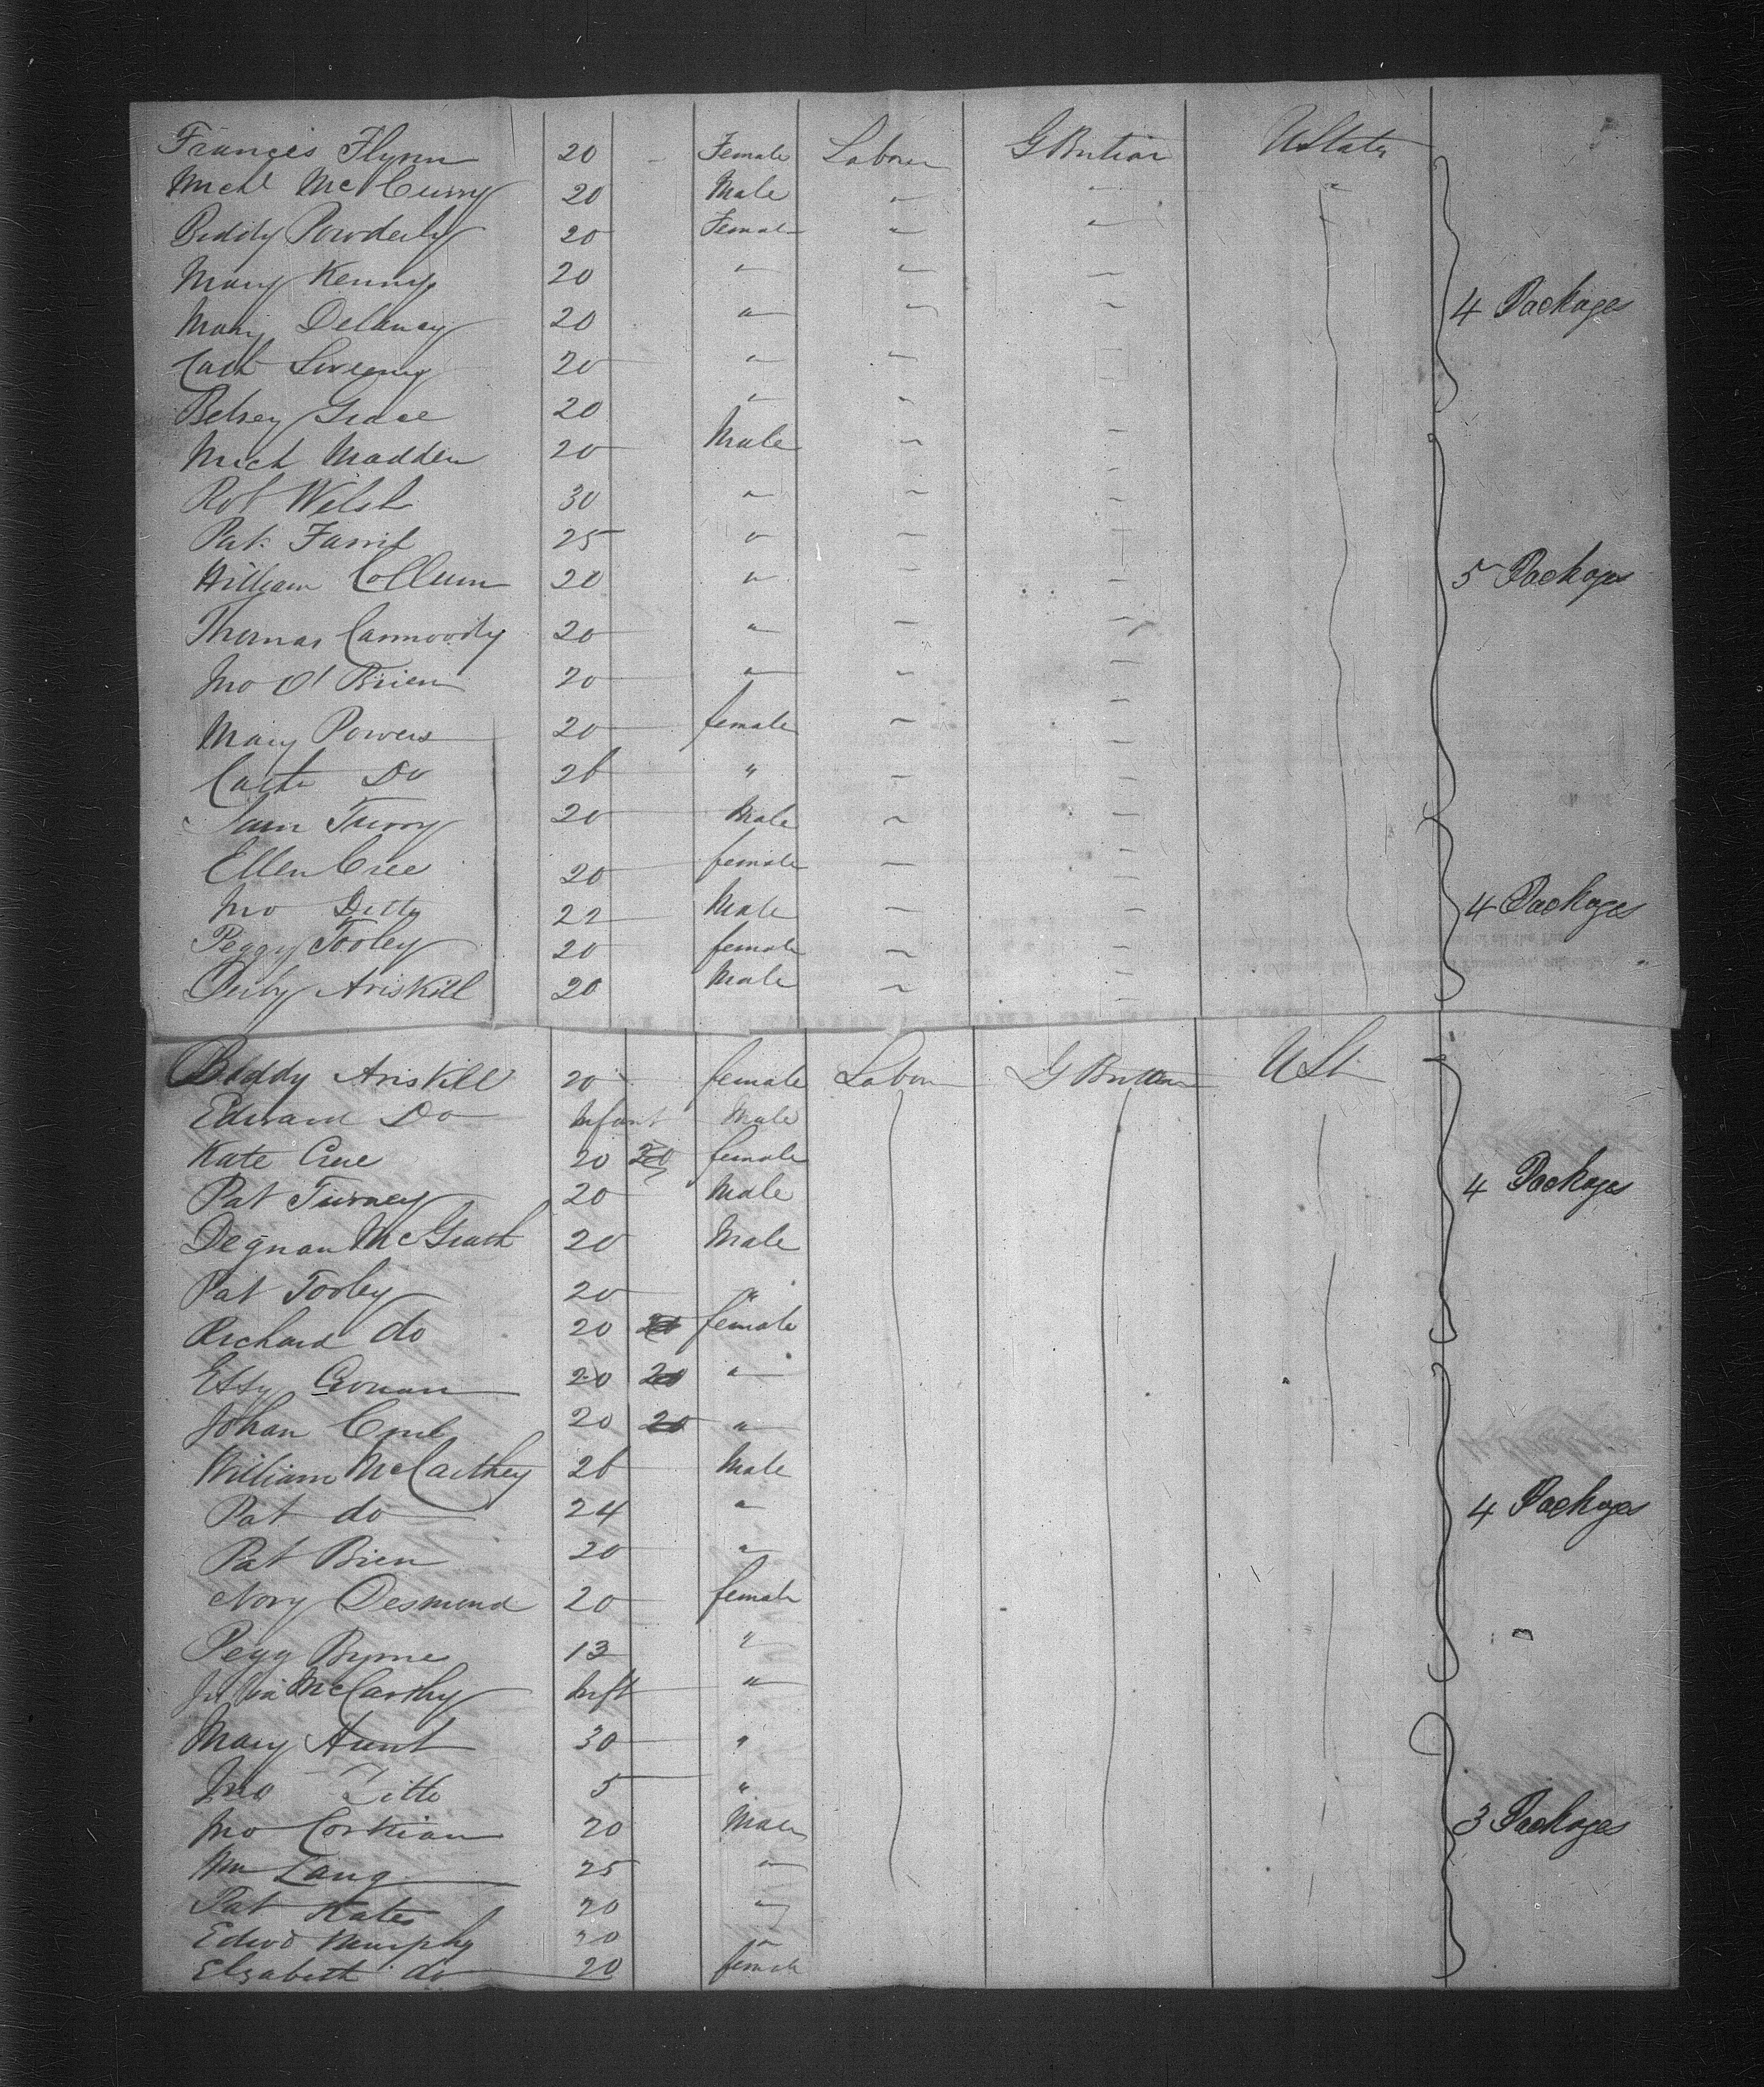 Frances Flynn 20 Female Labour G Britian U States
Michl McCurry 20 Male " " "
Biddy Powderly 20 Female " "
Mary Kenny 20 " " "
Mary Delaney 20 " " " 4 Packages
Cath Sweeny 20 " " "
Betsey Grace 20 " "
Mich Madden 20 Male " "
Rob Welsh 30 " " "
Pat 25 " "
William Collum 20 " " " 5 Packages
Thomas Carmoody 20 " " "
Jno O'Brien 20 " " "
Mary Powers 20 female " "
Cath Do 26 " " "
Turry 20 Male " "
Ellen Cree 20 female " "
Jno Ditto 22 Male " " 4 Packages
Peggy Tooley 20 female " "
Ariskill 20 Male " "
Biddy Ariskill 20 female Labour G Brittan U St
Edward Do Infant Male
Kate Crue 20 20 female
Pat Turney 20 Male 4 Packages
Degnan McGrath 20 Male
Pat Tooley 20 "
Richard do 20 20 female
Essy Cronan 20 20 "
Johan 20 20 "
William McCarthey 26 Male
Pat do 24 " 4 Packages
Pat Brien 20 "
Nory Desmond 20 female
Pegg Byrne 13 "
Julia McCarthy Inft "
Mary Hunt 30 "
Jno Ditto 5 "
Jno Corkian 20 Male 3 Packages
Wm Lang 25 "
Pat Kates 20 "
Edwd Murphy 20 "
Elzabeth do 20 female